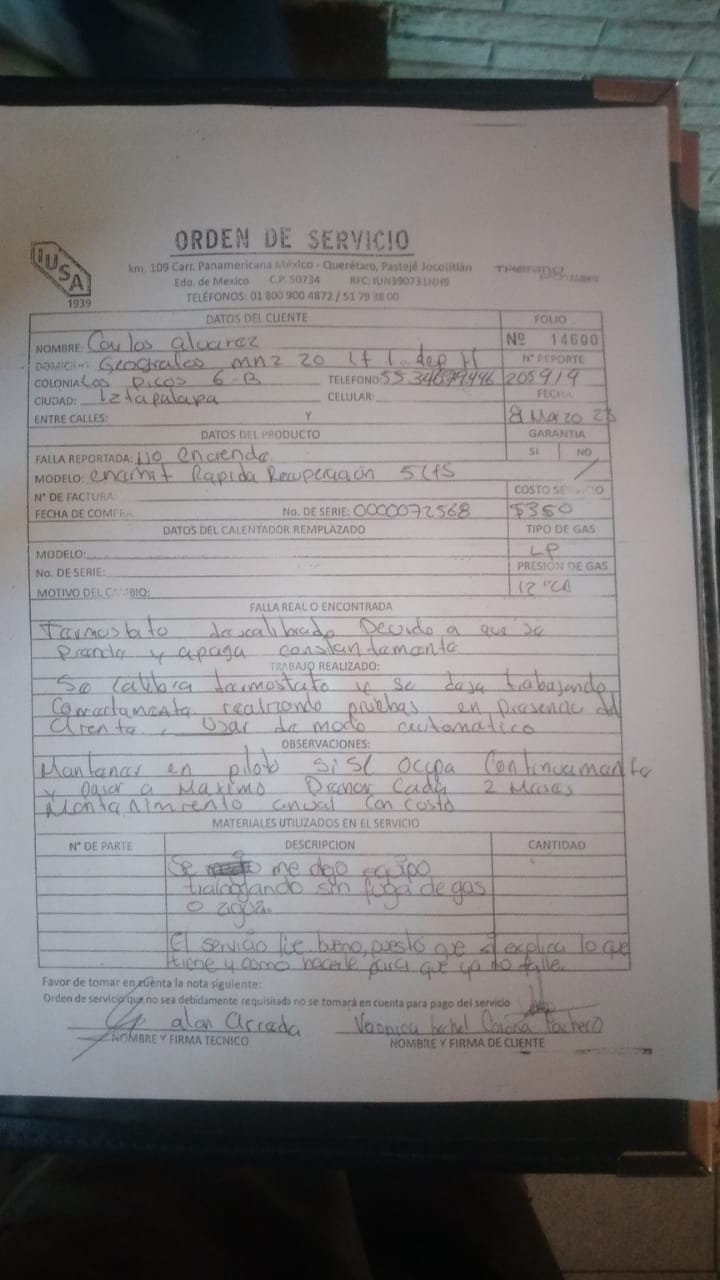 ORDEN DE SERVICIO
IUSA
1939
km. 109 Carr. Panamericana México - Querétaro, Pastejé Jocotitlán
Edo. de Mexico C.P. 50734 RFC: IUN390731NH9
TELÉFONOS: 01 800 900 4872 / 51 79 38 00
DATOS DEL CLIENTE FOLIO
NOMBRE: Carlos alvarez Nº 14600
Geografos mnz 20 lt 1 dep H N° REPORTE
COLONIA: Los Picos 6-B TELEFONO 205919
CIUDAD: Iztapalapa CELULAR: FECHA
ENTRE CALLES: Y 8 Marzo 23
DATOS DEL PRODUCTO GARANTIA
FALLA REPORTADA: No enciende SI NO
MODELO: Rapida Recuperación
N° DE FACTURA COSTO
FECHA DE No. DE SERIE: 0000072568 $350
DATOS DEL CALENTADOR REMPLAZADO TIPO DE GAS
MODELO: LP
No. DE SERIE: PRESIÓN DE GAS
MOTIVO DEL 12 "CA
FALLA REAL O ENCONTRADA
Termostato descalibrado Devido a que se
prende y apaga constantemente
TRABAJO REALIZADO:
Se calibra termostato y se deja trabajando
Correctamente realizando pruebas en presencia del
Usar de modo automatico
OBSERVACIONES:
Mantener en piloto si se occpa Continuamente
y pasar a Maximo Drenar Cada 2 Meses
anual con costo
MATERIALES UTILIZADOS EN EL SERVICIO
N° DE PARTE DESCRIPCION CANTIDAD
Se me dejo equipo
sin fuga de gas
o agua.
El servicio fue bueno, puesto que explica lo que
tiene y como hacerle para que ya no falle.
Favor de tomar en cuenta la nota siguiente:
Orden de servicio que no sea debidamente requisitada no se tomará en cuenta para pago del servicio
alan Arreda Veronica Corona Pacheco
NOMBRE Y FIRMA TECNICO NOMBRE Y FIRMA DE CLIENTE